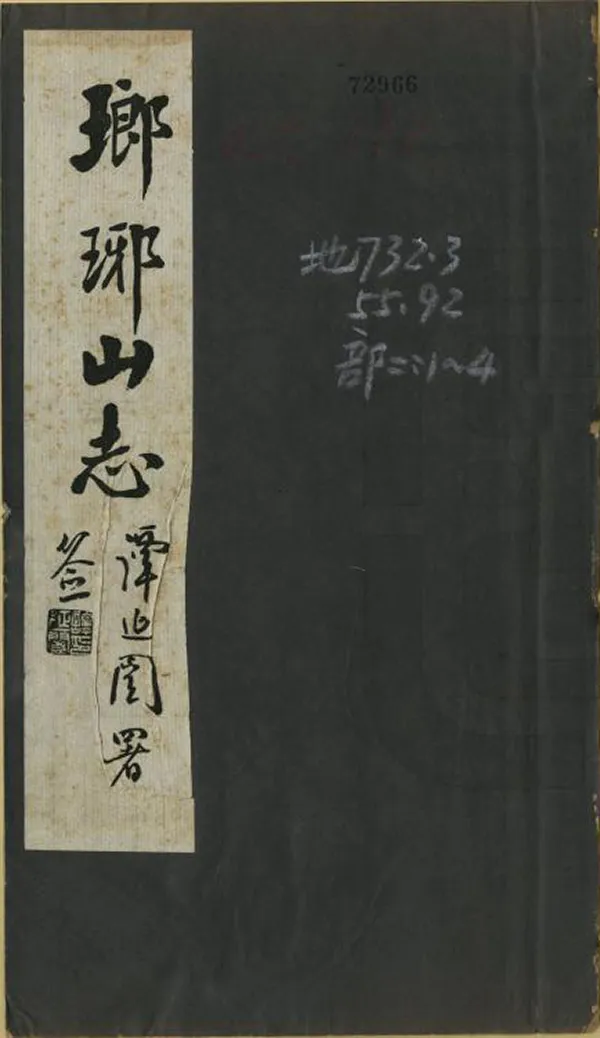 72966
地732.3
55.92
部二:1~4
瑯琊山志
譚延闓署
签